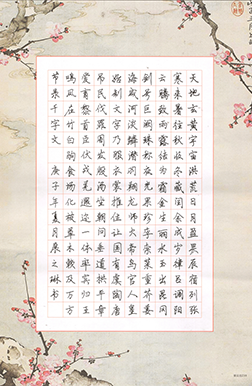 天地玄黄宇宙洪荒日月盈昃辰宿列张
寒来暑往秋收冬藏闰余成岁律吕调阳
云腾致雨露结为霜金生丽水玉出昆冈
剑号巨阙珠称夜光果珍李柰菜重芥姜
海咸河淡鳞潜羽翔龙师火帝鸟官人皇
始制文字乃服衣裳推位让国有虞陶唐
吊民伐罪周发殷汤坐朝问道垂拱平章
爱育黎首臣伏戎羌遐迩一体率宾归王
鸣凤在竹白驹食场化被草木赖及万方
节录千字文 庚子年夏月 之琳书